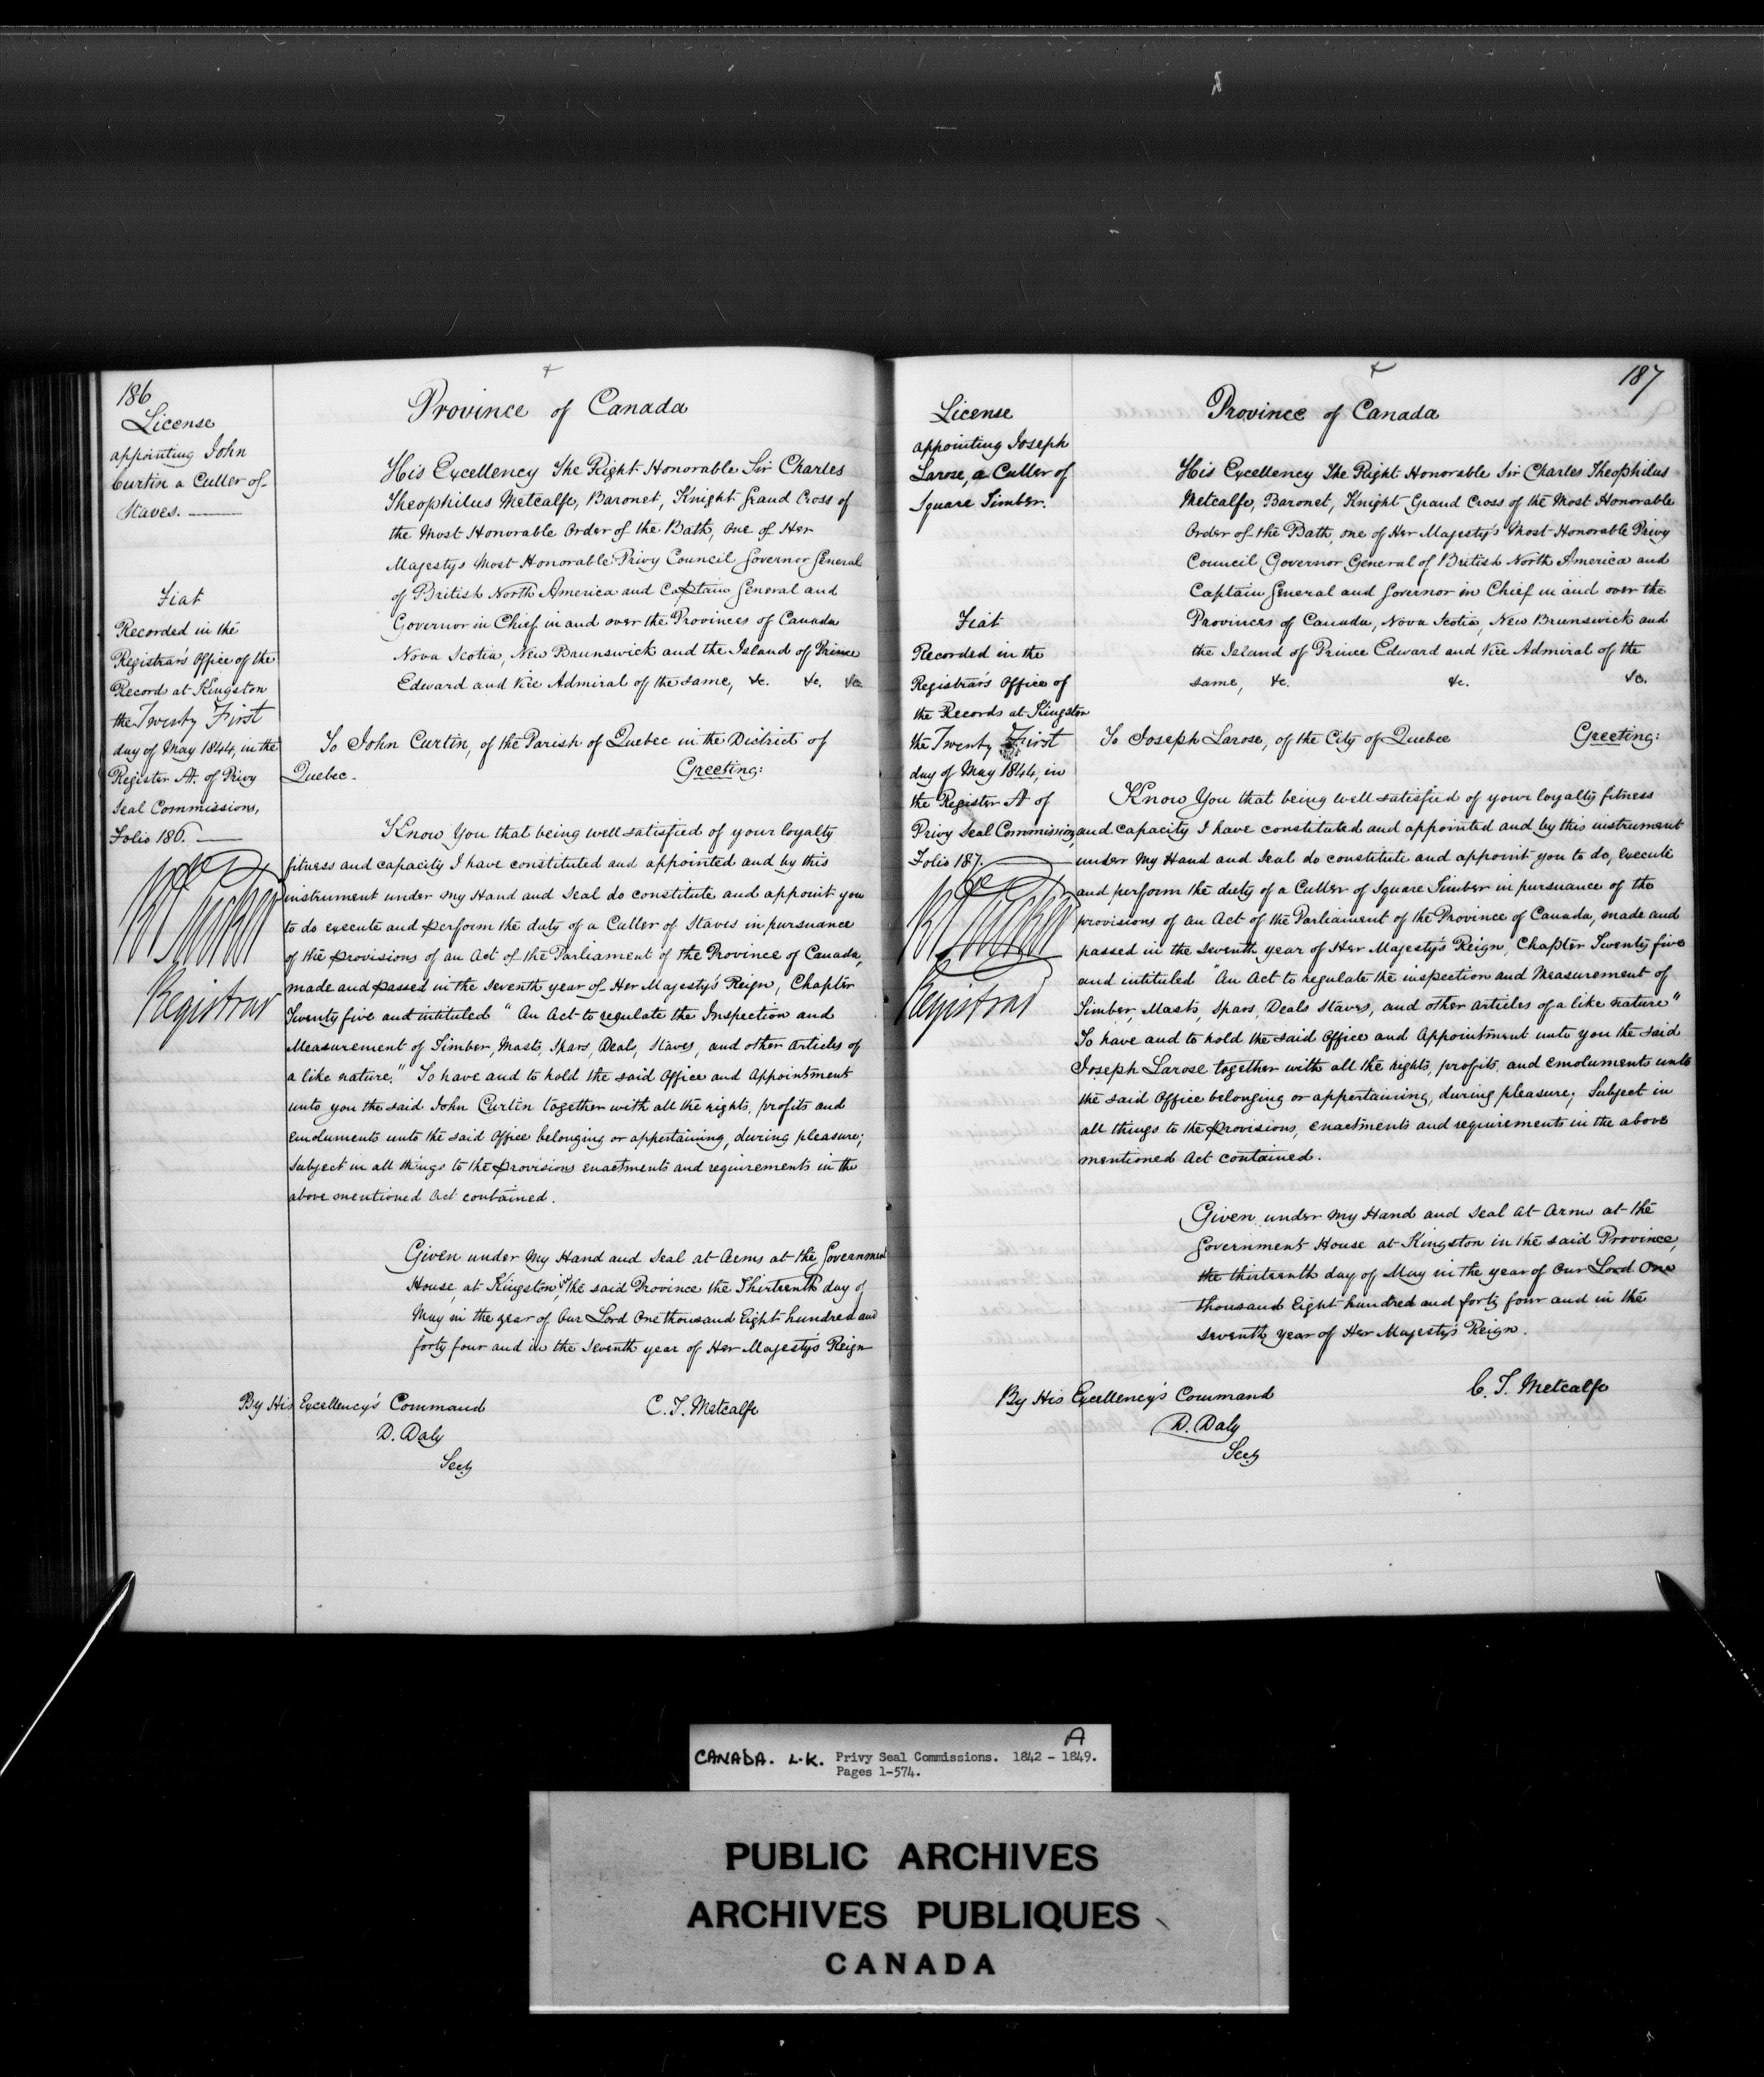 186
License
appointing John
Curtin a Culler of
Staves.
Fiat
Recorded in the
Registrar's Office of the
Records at Kingston
the Twenty First
day of May 1844, in the
Register A. of Privy
Seal Commissions,
Folio 186.
Registrar
Province of Canada
His Excellency The Right Honorable Sir Charles
Theophilus Metcalfe, Baronet, Knight Grand Cross of
the Most Honorable Order of the Bath, One of Her
Majestys Most Honorable Privy Council Governor General
of British North America and Captain General and
Governor in Chief in and over the Provinces of Canada
Nova Scotia, New Brunswick and the Island of Prince
Edward and Vice Admiral of the same, &c. &c. &c
To John Curtin, of the Parish of Quebec in the District of
Quebec. Greeting:
Know You that being well satisfied of your loyalty
fitness and capacity I have constituted and appointed and by this
instrument under my Hand and Seal do constitute and appoint you
to do execute and perform the duty of a Culler of Staves in pursuance
of the provisions of an Act of the Parliament of the Province of Canada,
made and passed in the Seventh year of Her Majesty's Reign, Chapter
Twenty five and intituled "An Act to regulate the Inspection and
Measurement of Timber, Masts, Spars, Deals, Staves, and other articles of
a like nature." To have and to hold the said Office and Appointment
unto you the said John Curtin together with all the rights, profits and
emoluments unto the said Office belonging or appertaining, during pleasure;
Subject in all things to the provisions enactments and requirements in the
above mentioned Act contained.
Given under my Hand and Seal at Arms at the Government
House, at Kingston in the said Province the Thirteenth day of
May in the year of Our Lord One thousand Eight hundred and
forty four and in the Seventh year of Her Majesty's Reign
By His Excellency's Command C. T. Metcalfe
D. Daly
Secy
187
License
appointing Joseph
Larose, a Culler of
Square Timber.
Fiat
Recorded in the
Registrar's Office of
the Records at Kingston
the Twenty First
day of May 1844, in
the Register A of
Privy Seal Commissions,
Folio 187.
Registrar
Province of Canada
His Excellency The Right Honorable Sir Charles Theophilus
Metcalfe, Baronet, Knight Grand Cross of the Most Honorable
Order of the Bath, one of Her Majesty's Most Honorable Privy
Council Governor General of British North America and
Captain General and Governor in Chief in and over the
Provinces of Canada, Nova Scotia, New Brunswick and
the Island of Prince Edward and Vice Admiral of the
same, &c. &c. &c.
To Joseph Larose, of the City of Quebec Greeting:
Know You that being well satisfied of your loyalty fitness
and capacity I have constituted and appointed and by this instrument
under My Hand and Seal do constitute and appoint you to do, execute
and perform the duty of a Culler of Square Timber in pursuance of the
provisions of an Act of the Parliament of the Province of Canada, made and
passed in the Seventh year of Her Majesty's Reign, Chapter Twenty five
and intituled "An Act to regulate the inspection and Measurement of
Timber, Masts, Spars, Deals Staves, and other articles of a like nature"
To have and to hold the said Office and Appointment unto you the said
Joseph Larose together with all the rights, profits, and emoluments unto
the said Office belonging or appertaining, during pleasure; Subject in
all things to the provisions, enactments and requirements in the above
mentioned Act contained.
Given under my Hand and Seal at Arms at the
Government House at Kingston in the said Province,
the thirteenth day of May in the year of Our Lord One
thousand Eight hundred and forty four and in the
Seventh year of Her Majesty's Reign.
By His Excellency's Command C. T. Metcalfe
D. Daly
Secy
A
CANADA. L.K. Privy Seal Commissions. 1842 - 1849.
Pages 1-574.
PUBLIC ARCHIVES
ARCHIVES PUBLIQUES
CANADA